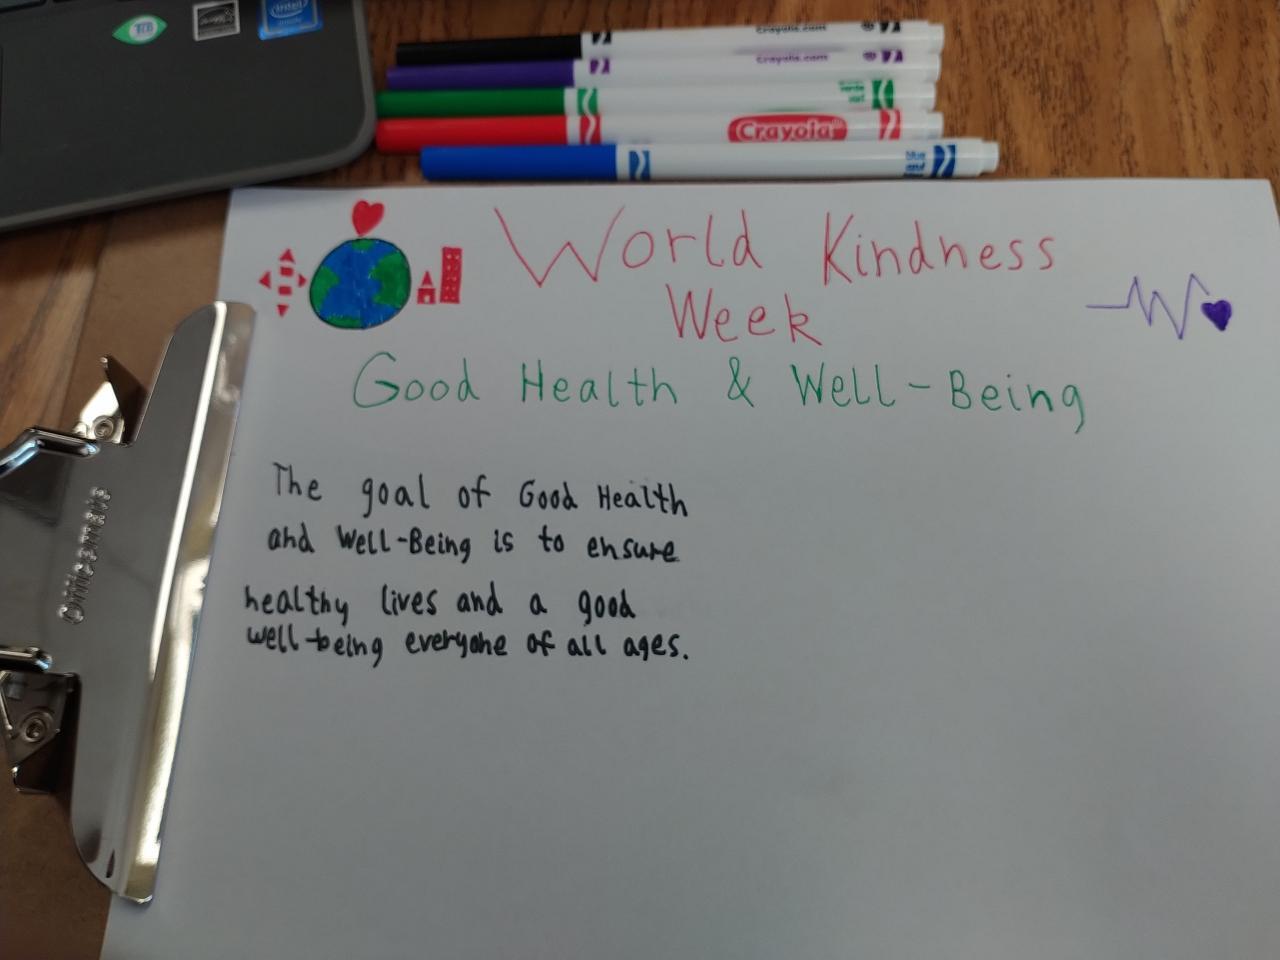 TCO
intel
Crayola.com
Crayola.com
Crayola
World Kindness
Week
Good Health & Well-Being
The goal of Good Health
and Well-Being is to ensure
healthy lives and a good
well-being everyone of all ages.
Officemate